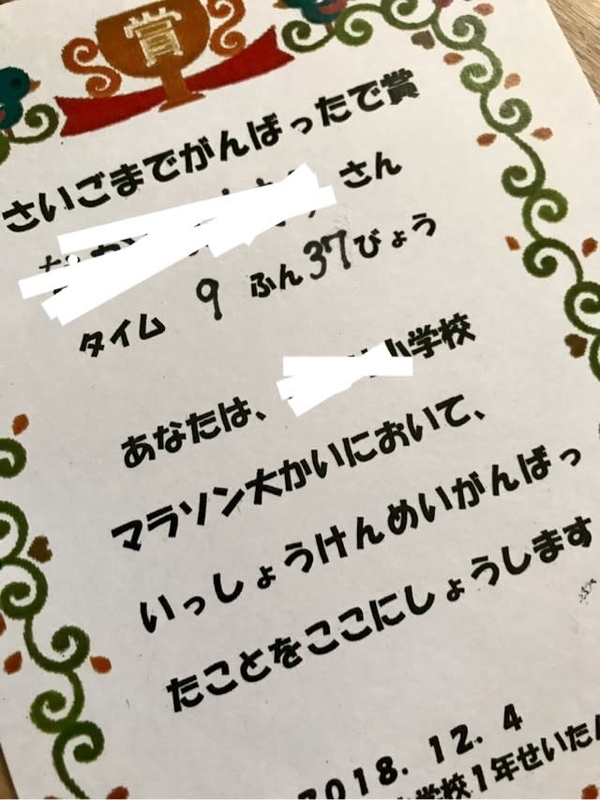 賞
さいごまでがんばったで賞
さん
タイム 9 ふん37びょう
あなたは、小学校
マラソン大かいにおいて、
いっしょうけんめいがんばっ
たことをここにしょうします
2018.12.4
学校1年せいたん